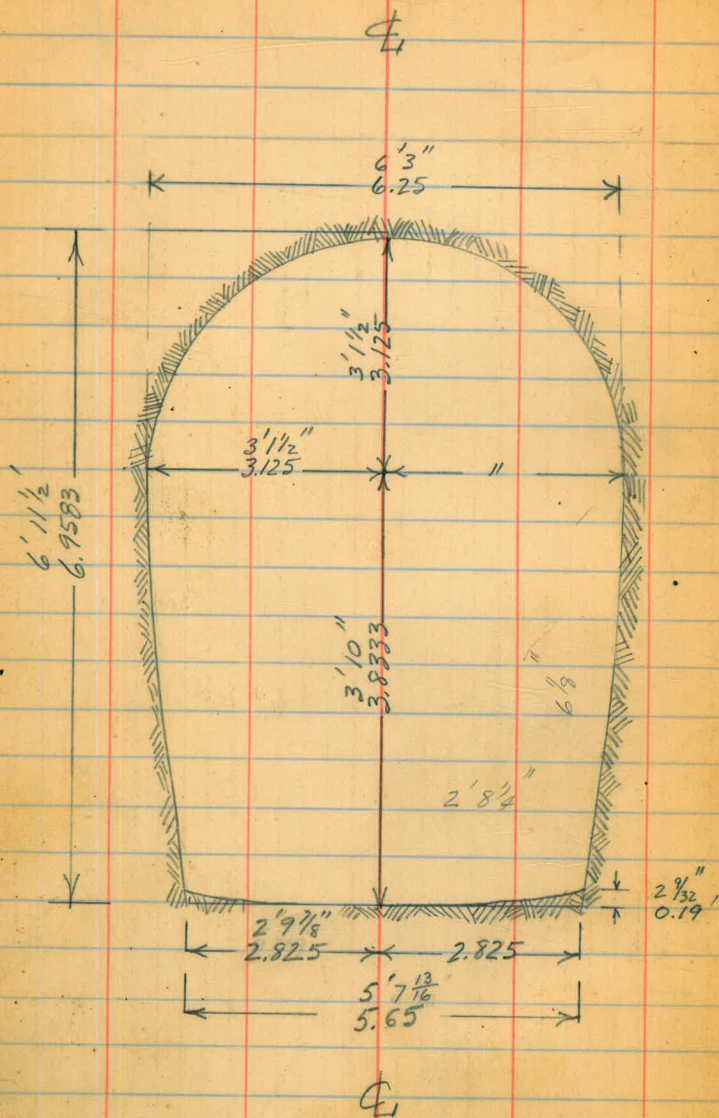 ℄
6'3"
6.25
3'1½"
3.125
3'1½"
3.125
"
6'11½'
6.9583
3'10"
3.8333
6⅛"
2'8¼"
2 9/32"
0.19'
2'9⅞"
2.825
2.825
5'7 13/16
5.65
℄